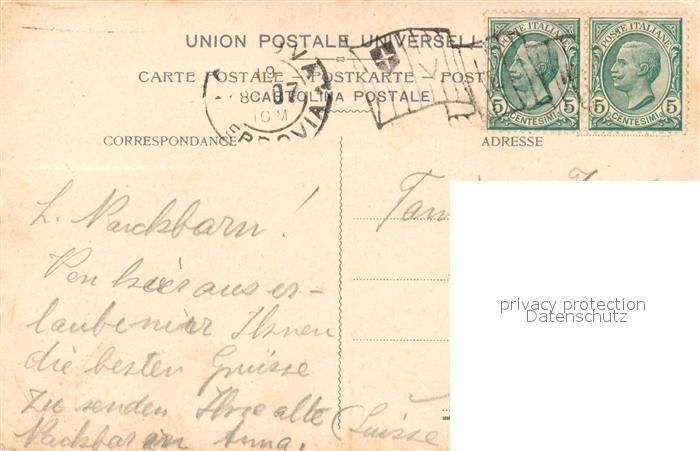 UNION POSTALE UNIVERSELLE
CARTE POSTALE — POSTKARTE — POST
CARTOLINA POSTALE
POSTE ITALIANE
5 5
CENTESIMI
POSTE ITALIANE
5 5
CENTESIMI
07
10 M
CORRESPONDANCE
ADRESSE
L. Nachbarn!
Von hier aus er-
lauben wir Ihnen
die besten Grüsse
zu senden Ihre alte
Nachbarin Anna.
(Suisse
privacy protection
Datenschutz